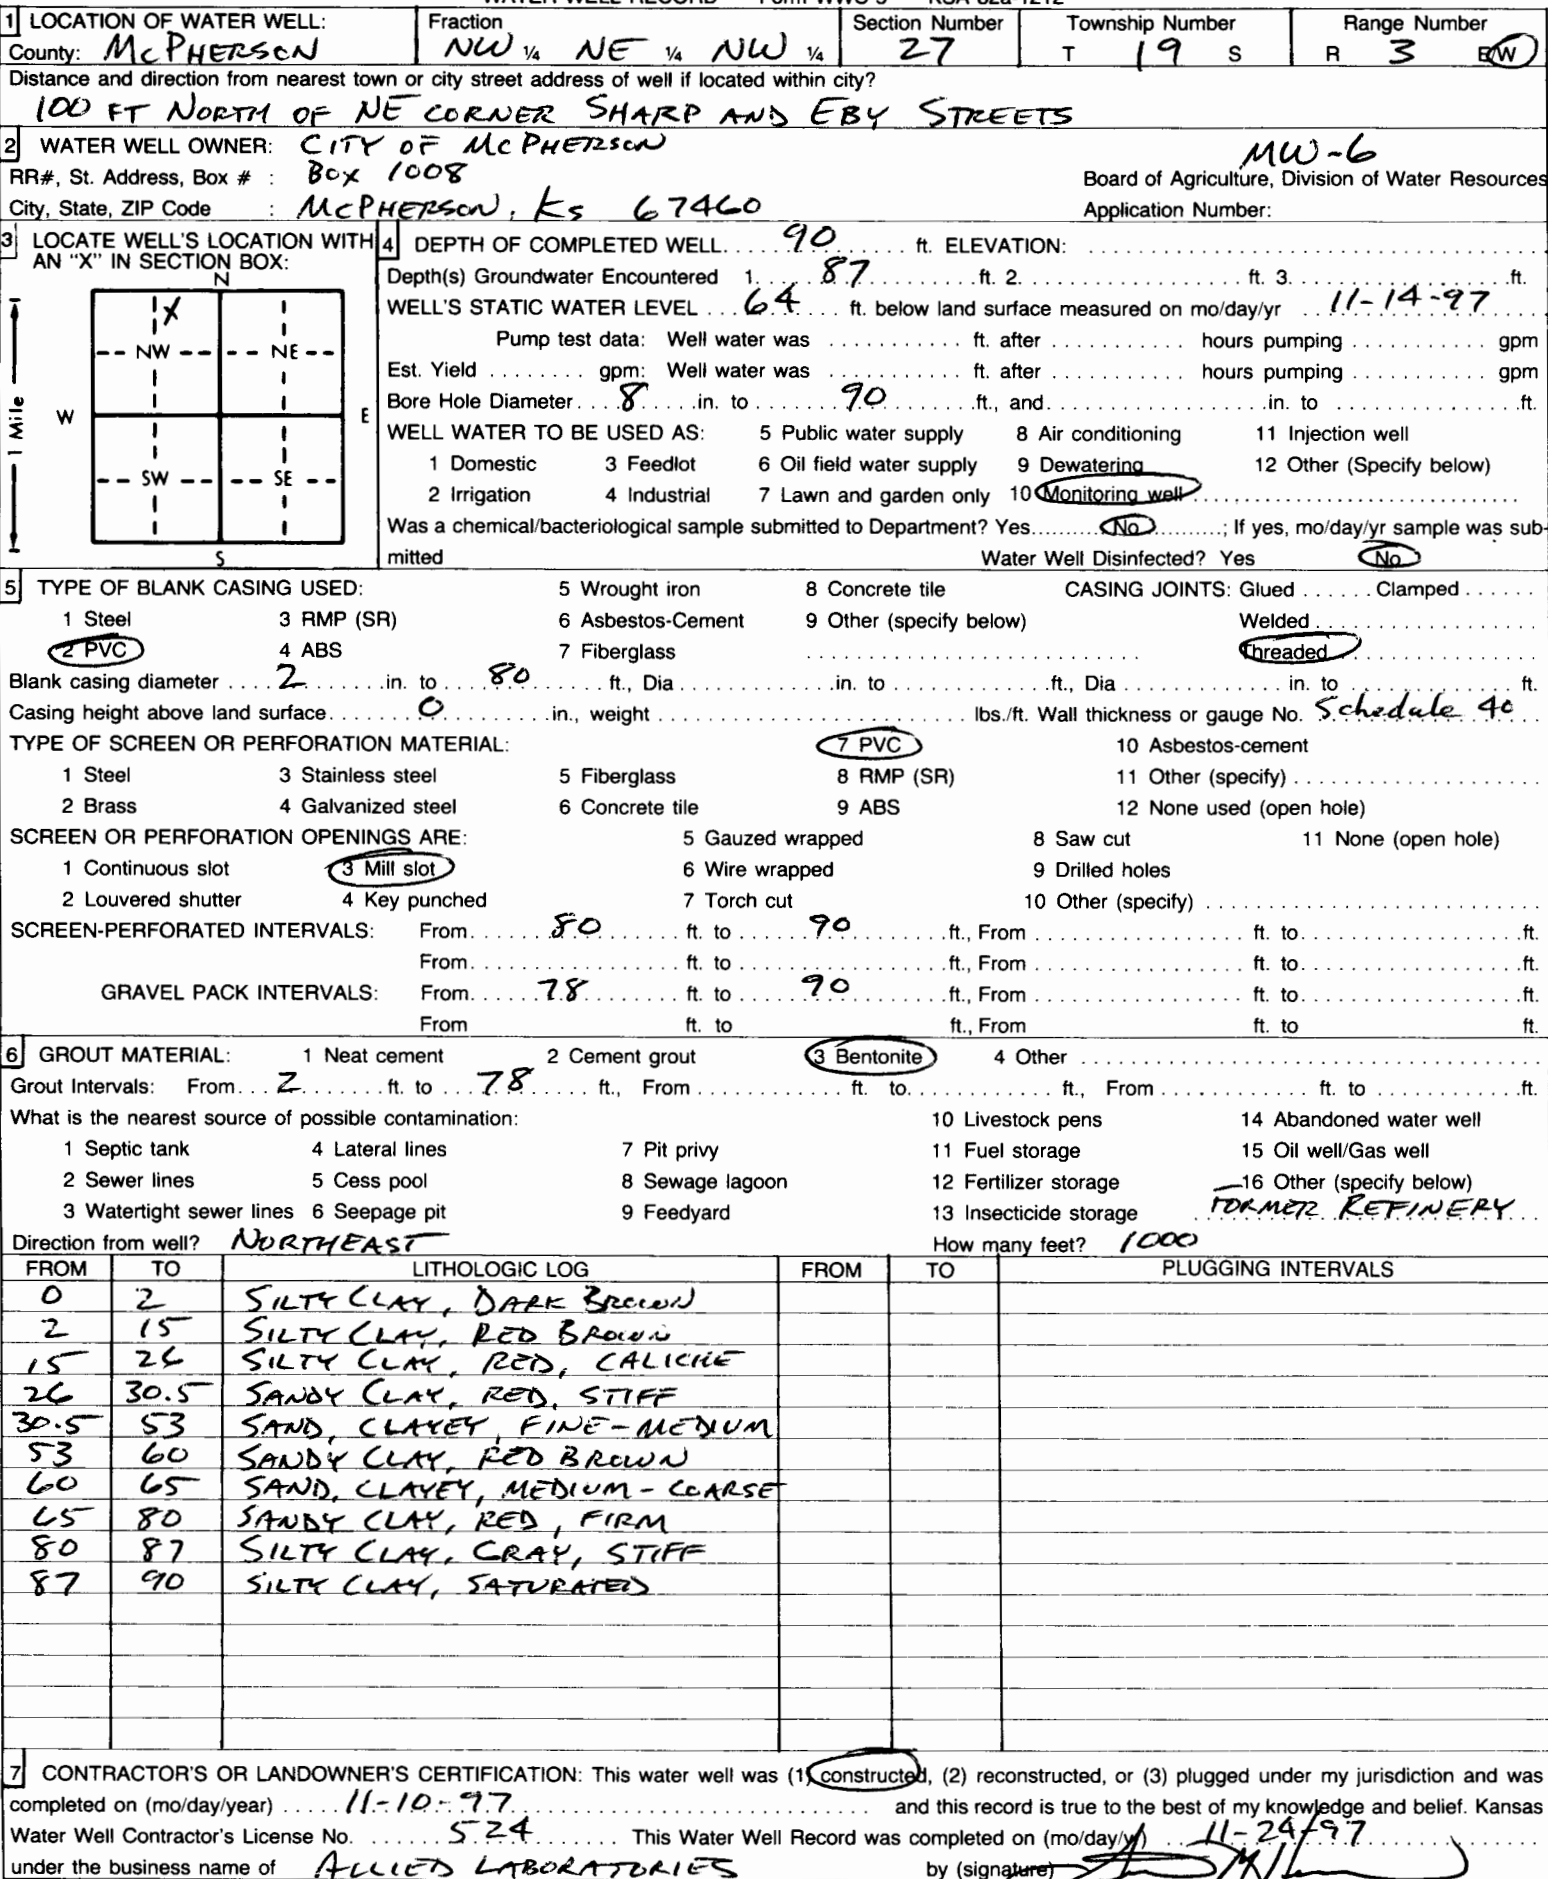 1 LOCATION OF WATER WELL: Fraction Section Number Township Number Range Number
County: McPHERSON NW ¼ NE ¼ NW ¼ 27 T 19 S R 3 E/W
Distance and direction from nearest town or city street address of well if located within city?
100 FT NORTH OF NE CORNER SHARP AND EBY STREETS
2 WATER WELL OWNER: CITY OF McPHERSON MW-6
RR#, St. Address, Box # : BOX 1008 Board of Agriculture, Division of Water Resources
City, State, ZIP Code : McPHERSON, Ks 67460 Application Number:
3 LOCATE WELL'S LOCATION WITH AN "X" IN SECTION BOX:
N
X
NW NE
W E
1 Mile
SW SE
S
4 DEPTH OF COMPLETED WELL 90 ft. ELEVATION:
Depth(s) Groundwater Encountered 1. 87 ft. 2. ft. 3. ft.
WELL'S STATIC WATER LEVEL 64 ft. below land surface measured on mo/day/yr 11-14-97
Pump test data: Well water was ft. after hours pumping gpm
Est. Yield gpm: Well water was ft. after hours pumping gpm
Bore Hole Diameter 8 in. to 90 ft., and in. to ft.
WELL WATER TO BE USED AS: 5 Public water supply 8 Air conditioning 11 Injection well
1 Domestic 3 Feedlot 6 Oil field water supply 9 Dewatering 12 Other (Specify below)
2 Irrigation 4 Industrial 7 Lawn and garden only 10 Monitoring well
Was a chemical/bacteriological sample submitted to Department? Yes No ; If yes, mo/day/yr sample was sub-
mitted Water Well Disinfected? Yes No
5 TYPE OF BLANK CASING USED: 5 Wrought iron 8 Concrete tile CASING JOINTS: Glued Clamped
1 Steel 3 RMP (SR) 6 Asbestos-Cement 9 Other (specify below) Welded
2 PVC 4 ABS 7 Fiberglass Threaded
Blank casing diameter 2 in. to 80 ft., Dia in. to ft., Dia in. to ft.
Casing height above land surface 0 in., weight lbs./ft. Wall thickness or gauge No. Schedule 40
TYPE OF SCREEN OR PERFORATION MATERIAL: 7 PVC 10 Asbestos-cement
1 Steel 3 Stainless steel 5 Fiberglass 8 RMP (SR) 11 Other (specify)
2 Brass 4 Galvanized steel 6 Concrete tile 9 ABS 12 None used (open hole)
SCREEN OR PERFORATION OPENINGS ARE: 5 Gauzed wrapped 8 Saw cut 11 None (open hole)
1 Continuous slot 3 Mill slot 6 Wire wrapped 9 Drilled holes
2 Louvered shutter 4 Key punched 7 Torch cut 10 Other (specify)
SCREEN-PERFORATED INTERVALS: From 80 ft. to 90 ft., From ft. to ft.
From ft. to ft., From ft. to ft.
GRAVEL PACK INTERVALS: From 78 ft. to 90 ft., From ft. to ft.
From ft. to ft., From ft. to ft.
6 GROUT MATERIAL: 1 Neat cement 2 Cement grout 3 Bentonite 4 Other
Grout Intervals: From 2 ft. to 78 ft., From ft. to ft., From ft. to ft.
What is the nearest source of possible contamination: 10 Livestock pens 14 Abandoned water well
1 Septic tank 4 Lateral lines 7 Pit privy 11 Fuel storage 15 Oil well/Gas well
2 Sewer lines 5 Cess pool 8 Sewage lagoon 12 Fertilizer storage 16 Other (specify below)
3 Watertight sewer lines 6 Seepage pit 9 Feedyard 13 Insecticide storage FORMER REFINERY
Direction from well? NORTHEAST How many feet? 1000
FROM TO LITHOLOGIC LOG FROM TO PLUGGING INTERVALS
0 2 SILTY CLAY, DARK BROWN
2 15 SILTY CLAY, RED BROWN
15 26 SILTY CLAY, RED, CALICHE
26 30.5 SANDY CLAY, RED, STIFF
30.5 53 SAND, CLAYEY, FINE-MEDIUM
53 60 SANDY CLAY, RED BROWN
60 65 SAND, CLAYEY, MEDIUM-COARSE
65 80 SANDY CLAY, RED, FIRM
80 87 SILTY CLAY, GRAY, STIFF
87 90 SILTY CLAY, SATURATED
7 CONTRACTOR'S OR LANDOWNER'S CERTIFICATION: This water well was (1) constructed, (2) reconstructed, or (3) plugged under my jurisdiction and was
completed on (mo/day/year) 11-10-97 and this record is true to the best of my knowledge and belief. Kansas
Water Well Contractor's License No. 524 This Water Well Record was completed on (mo/day/yr) 11-24-97
under the business name of ALLIED LABORATORIES by (signature)